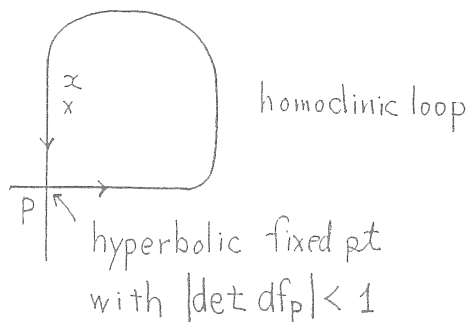 x
x
homoclinic loop
P
hyperbolic fixed pt
with |det df_p| < 1